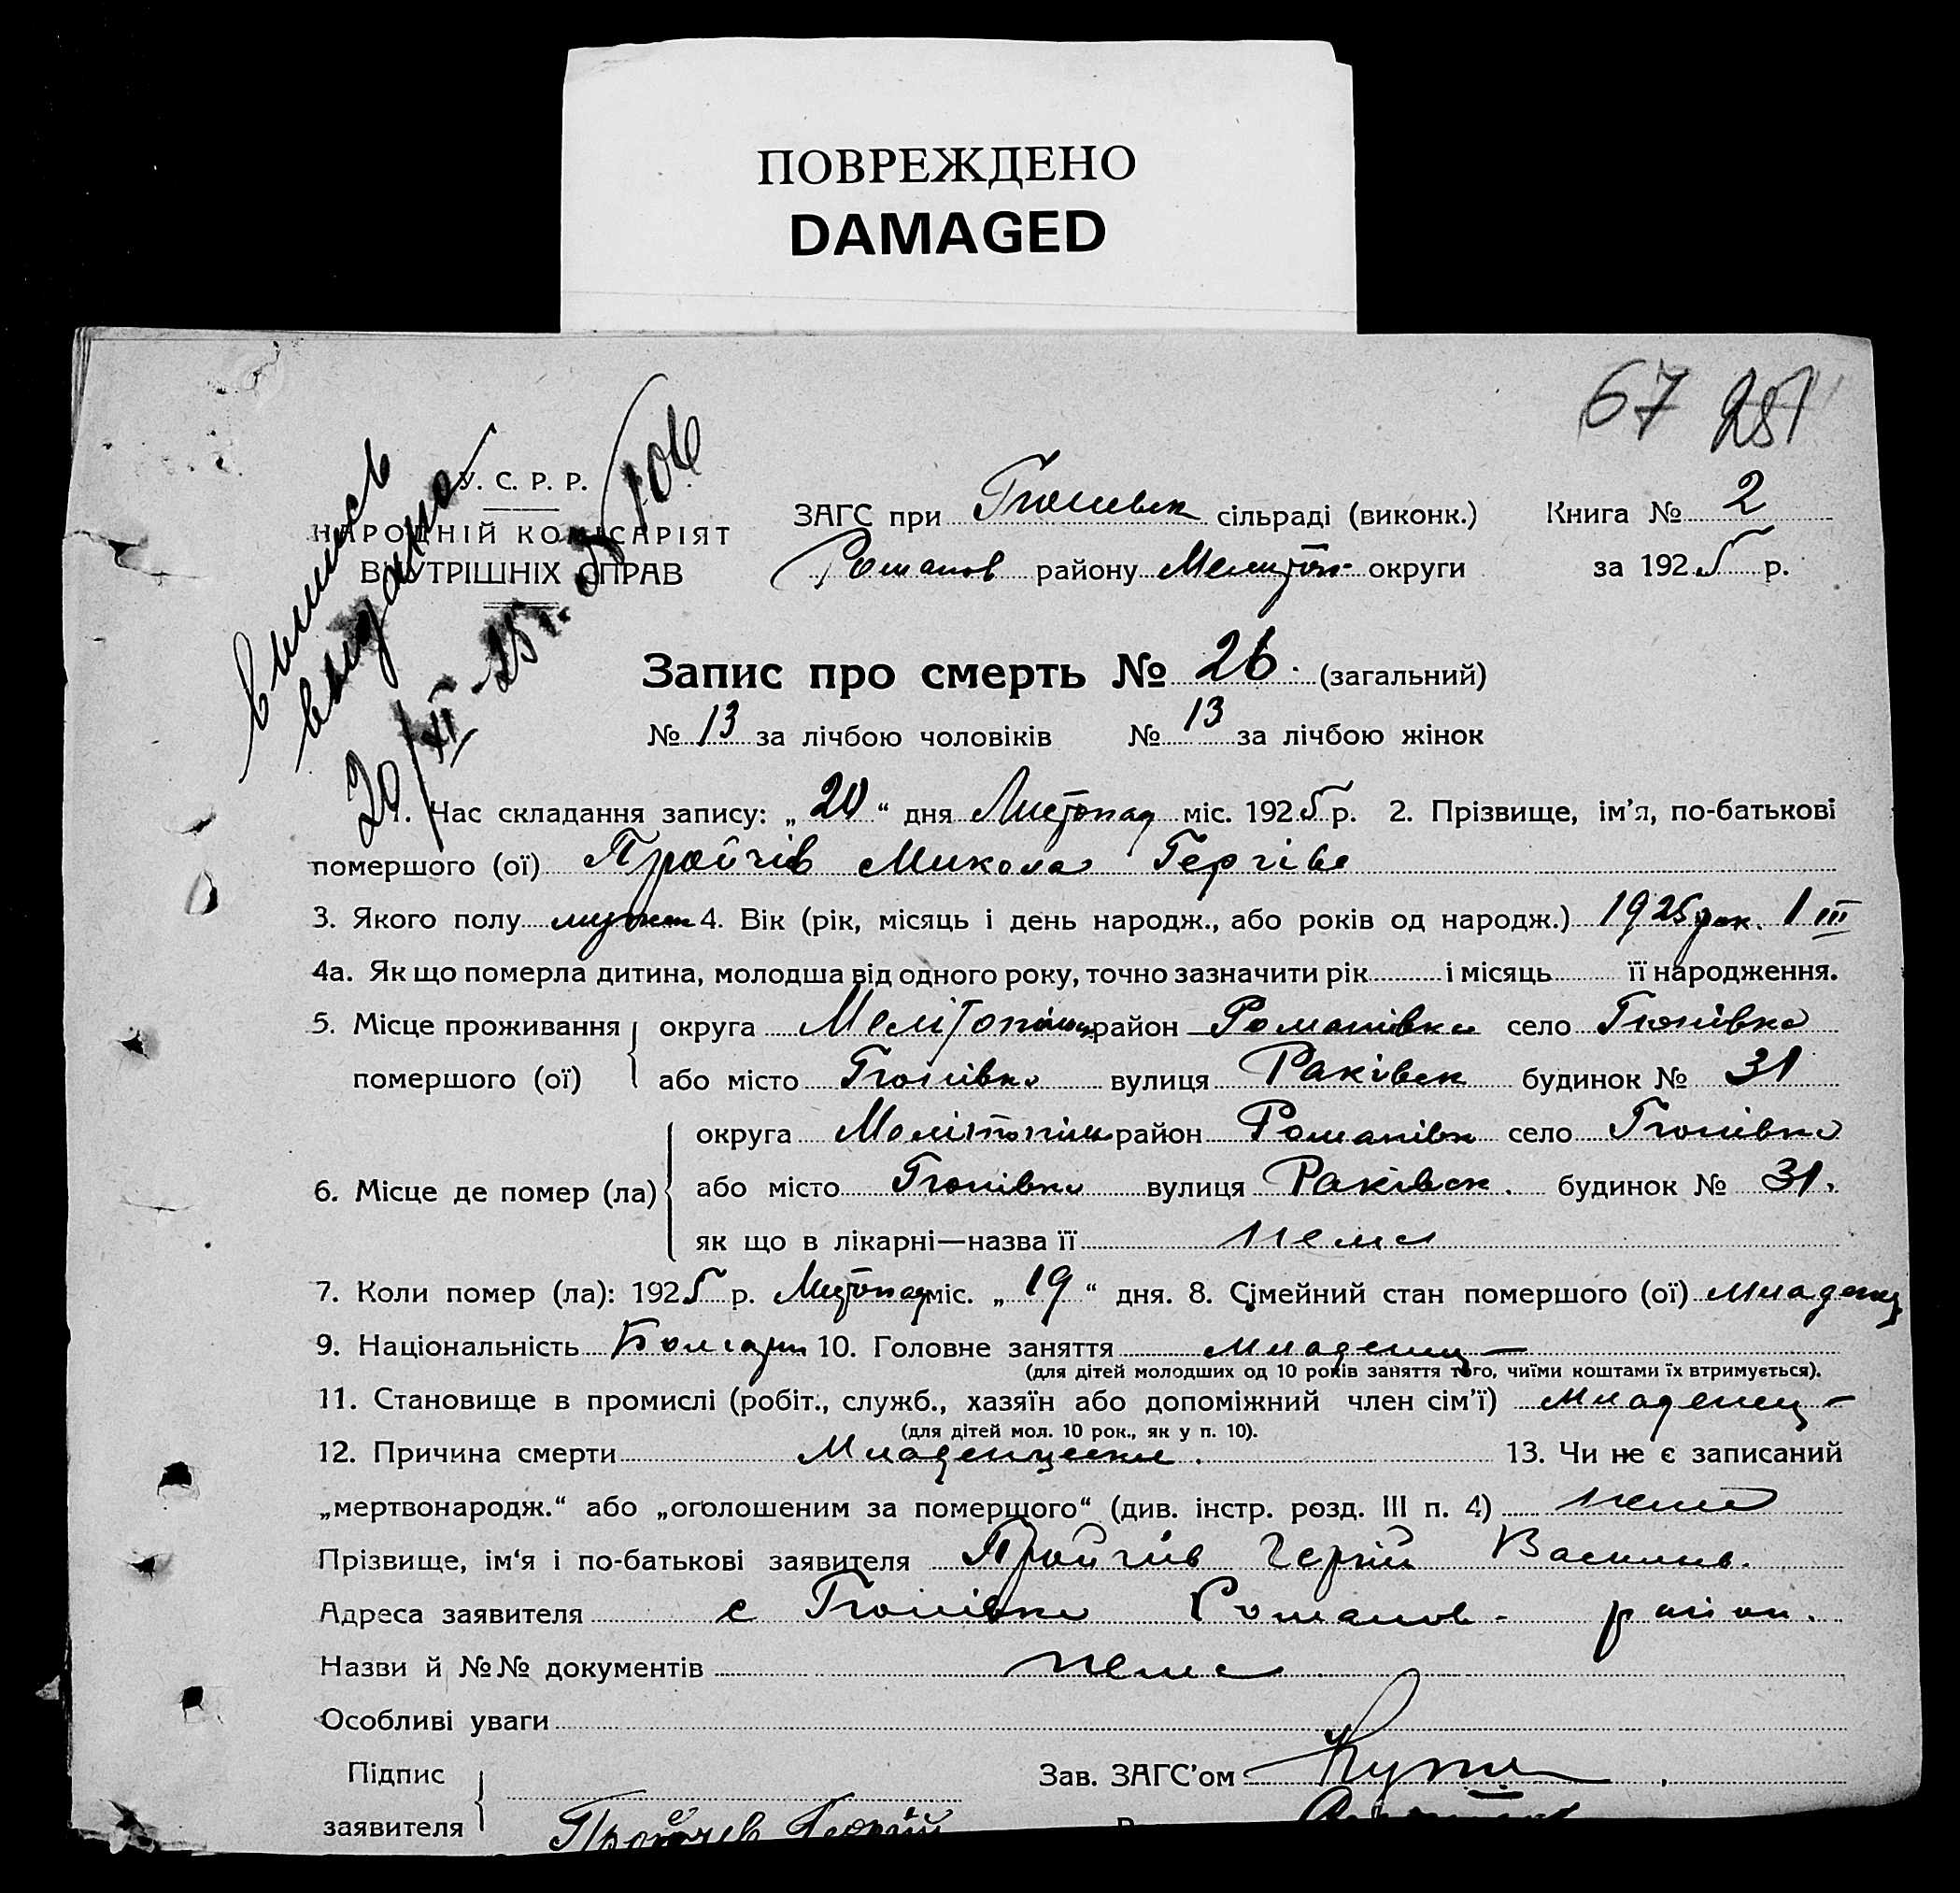 ПОВРЕЖДЕНО
DAMAGED
67 251
Выпись
выдана
20/XI-25 г.
У. С. Р. Р.
НАРОДНІЙ КОМІСАРІЯТ
ВНУТРІШНІХ СПРАВ
ЗАГС при Гюнівск сільраді (виконк.) Книга № 2
Романов району Мелітоп округи за 1925 р.
Запис про смерть № 26. (загальний)
№ 13 за лічбою чоловіків № 13 за лічбою жінок
1. Час складання запису: „ 20 “ дня Листопад міс. 1925 р. 2. Прізвище, ім’я, по-батькові
помершого (ої) Пройчів Микола Гергіев
3. Якого полу мужск 4. Вік (рік, місяць і день народж., або років од народж.) 1925 рок. 1 III
4а. Як що померла дитина, молодша від одного року, точно зазначити рік і місяць її народження.
5. Місце проживання округа Мелітопільск район Романівка село Гюнівка
помершого (ої) або місто Гюнівка вулиця Раківск будинок № 31
округа Мелітопільс район Романівк село Гюнівка
6. Місце де помер (ла) або місто Гюнівка вулиця Раківск. будинок № 31.
як що в лікарні—назва її нема
7. Коли помер (ла): 1925 р. Листопад міс. „ 19 “ дня. 8. Сімейний стан помершого (ої) младенец
9. Національність Болгарин 10. Головне заняття младенец —
(для дітей молодших од 10 років заняття того, чиїми коштами їх втримується).
11. Становище в промислі (робіт., служб., хазяїн або допоміжний член сім’ї) младенец —
(для дітей мол. 10 рок., як у п. 10).
12. Причина смерти Младенческая. 13. Чи не є записаний
„мертвонародж.“ або „оголошеним за помершого“ (див. інстр. розд. III п. 4) нема
Прізвище, ім‘я і по-батькові заявителя Пройчів Гергій Василив.
Адреса заявителя с Гюнівка Романов- район.
Назви й №№ документів нема
Особливі уваги
Підпис Зав. ЗАГС’ом
заявителя Пройчев Георгій